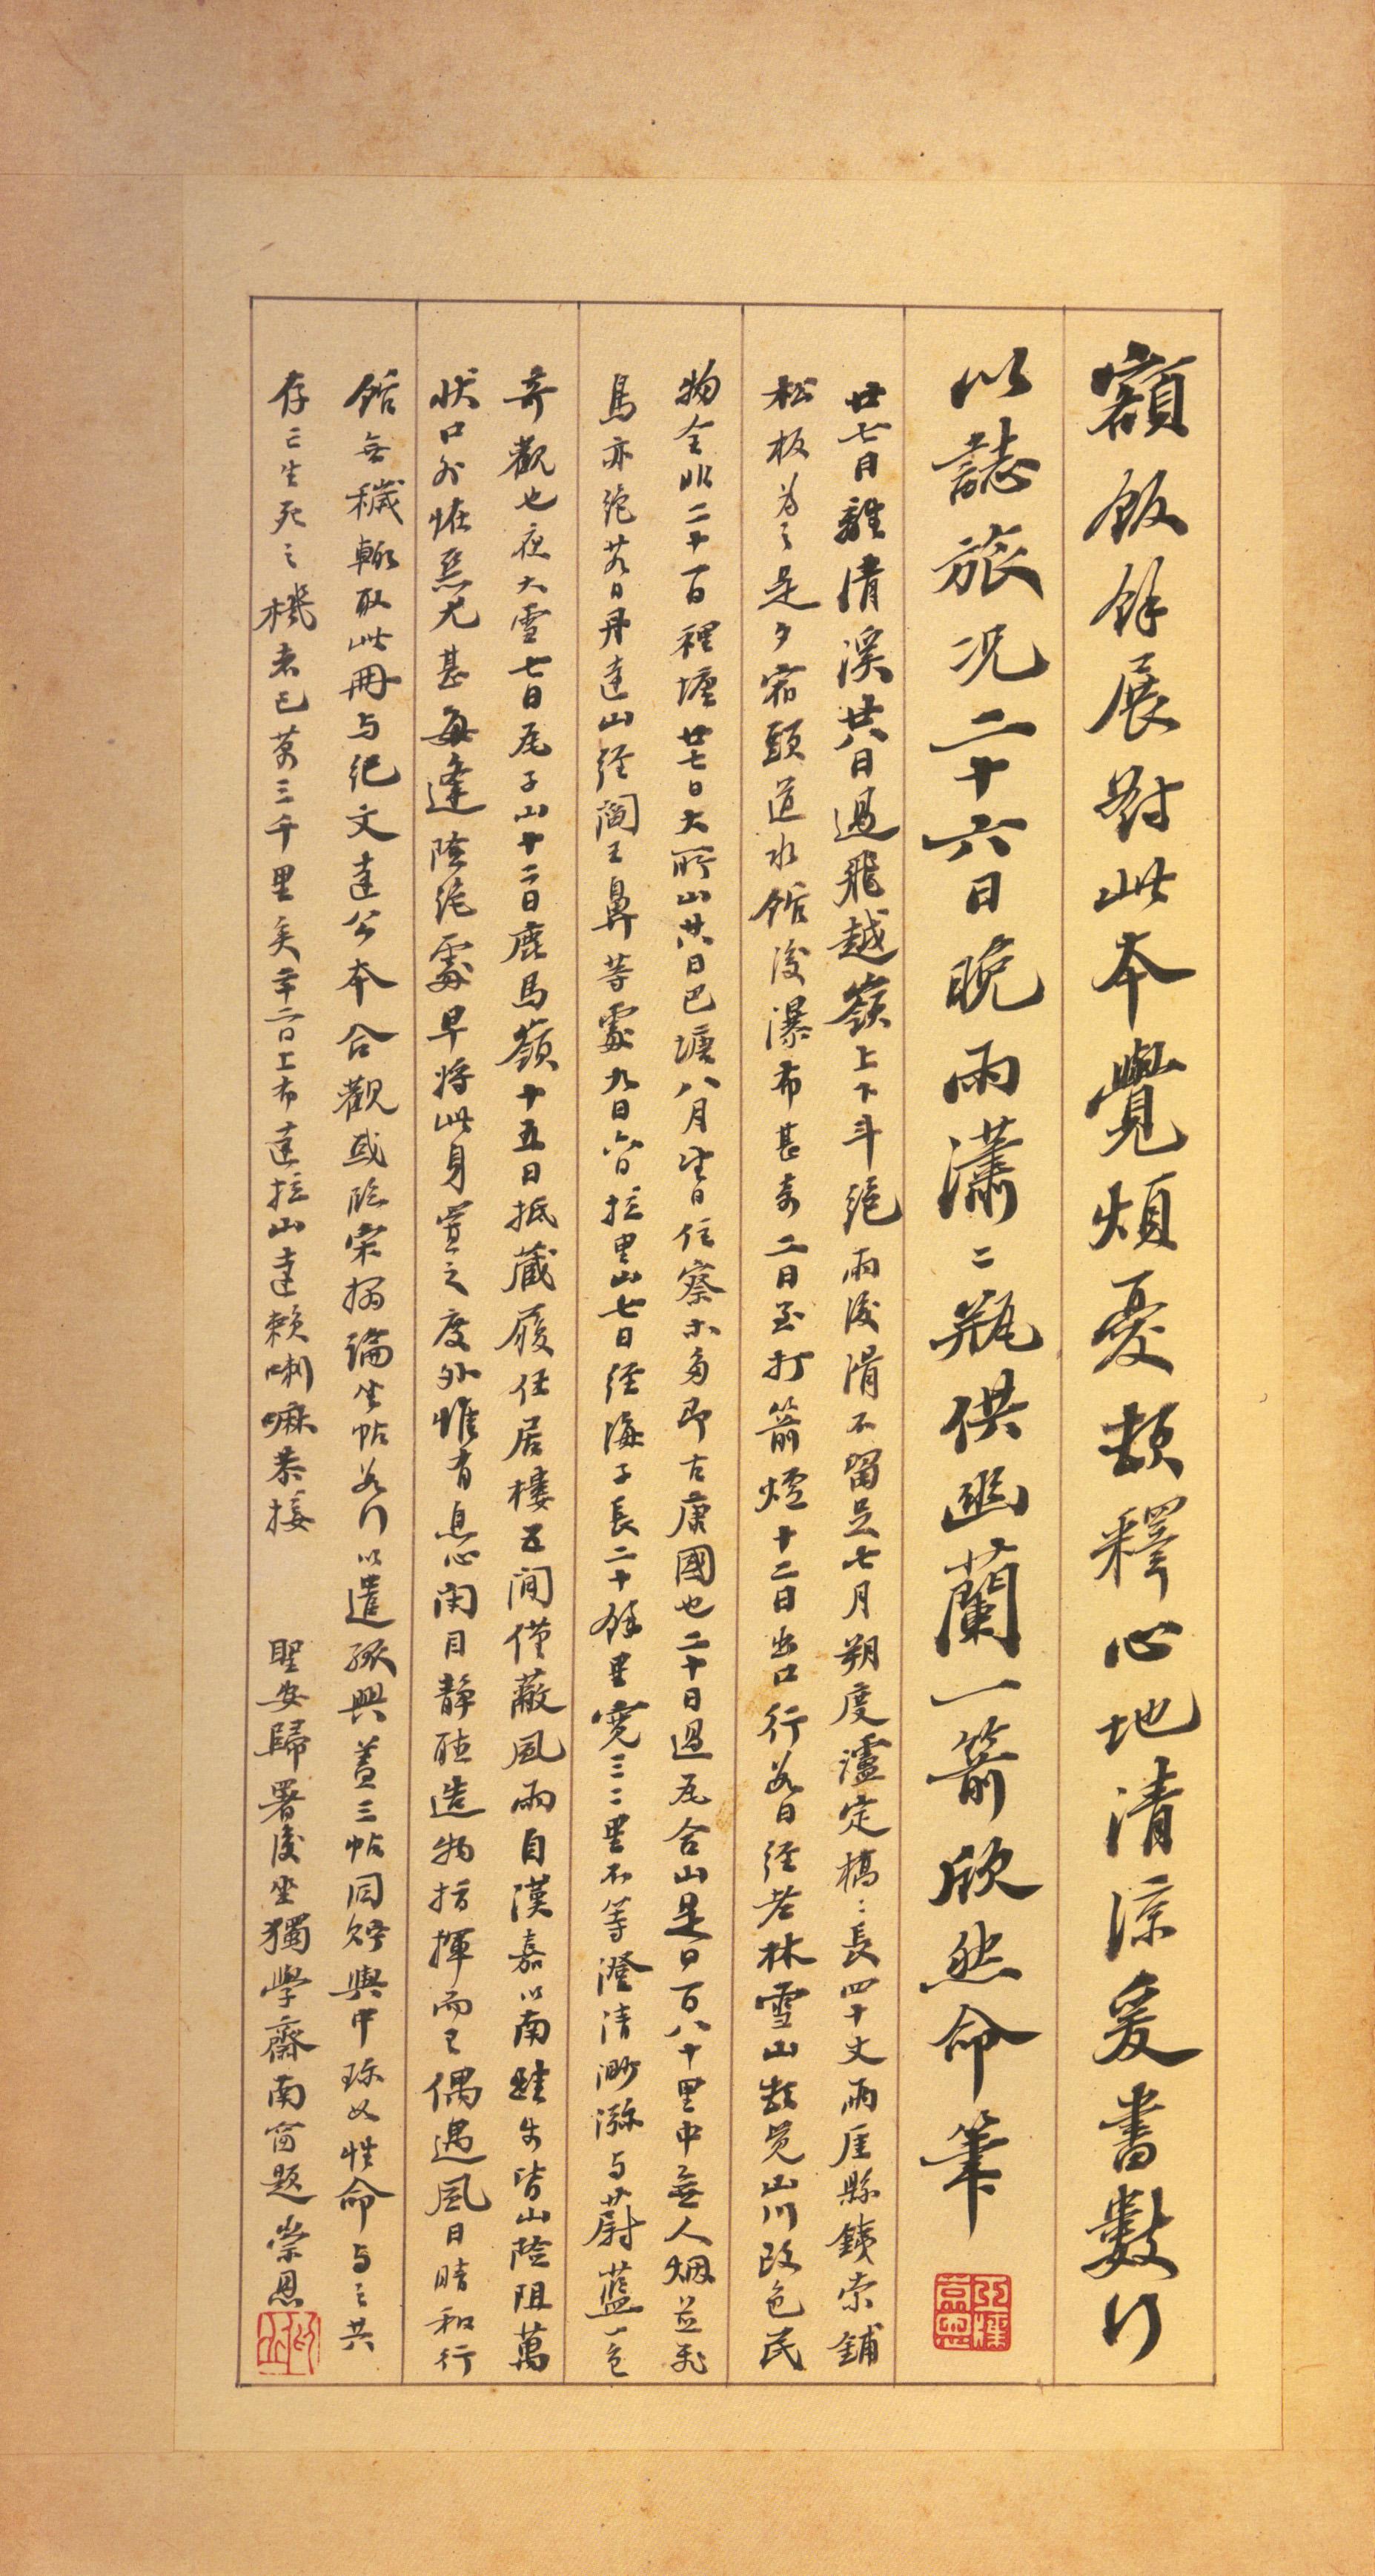 額飯餘展對此本覺煩憂頓釋心地清涼爰書數行
以誌旅況二十六日晚雨瀟二瓶供幽蘭一箭欣然命筆
廿七日離清溪廿八日過飛越嶺上下斗絕雨後滑不留足七月朔度瀘定橋：長四十丈兩厓縣鐵索鋪
松板為之是夕宿頭道水館後瀑布甚奇二日至打箭爐十二日出口行數日經老林雪山頓覺山川改色民
物全非二十一日裡塘廿七日大所山廿八日巴塘八月望日住察木多即古康國也二十日過瓦合山是日百八十里中無人烟並飛
鳥亦絕廿九日丹達山經閻王鼻等處九月六日拉里山七日經海子長二十餘里寬三二里不等澄清渺瀰与蔚藍一色
奇觀也夜大雪七日瓦子山十二日鹿馬嶺十五日抵藏履任居樓五間僅蔽風雨自漢嘉以南雖步皆山險阻萬
狀口外惟惡尤甚每逢險絕處早將此身置之度外惟有息心閉目靜聽造物指揮而已偶遇風日晴和行
館無穢輒取此冊与紀文達公本合觀或臨宋搨論坐帖數行以遣孤興蓋三帖同貯輿中珍如性命与之共
存亡生死之機者已萬三千里矣二日上布達拉山達賴喇嘛恭接 聖安歸署後坐獨學齋南窗題 崇恩